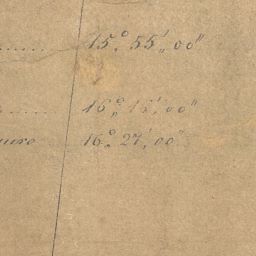 ...... 15°, 55', 00"
....... 16°, 15', 00"
16°, 27', 00"